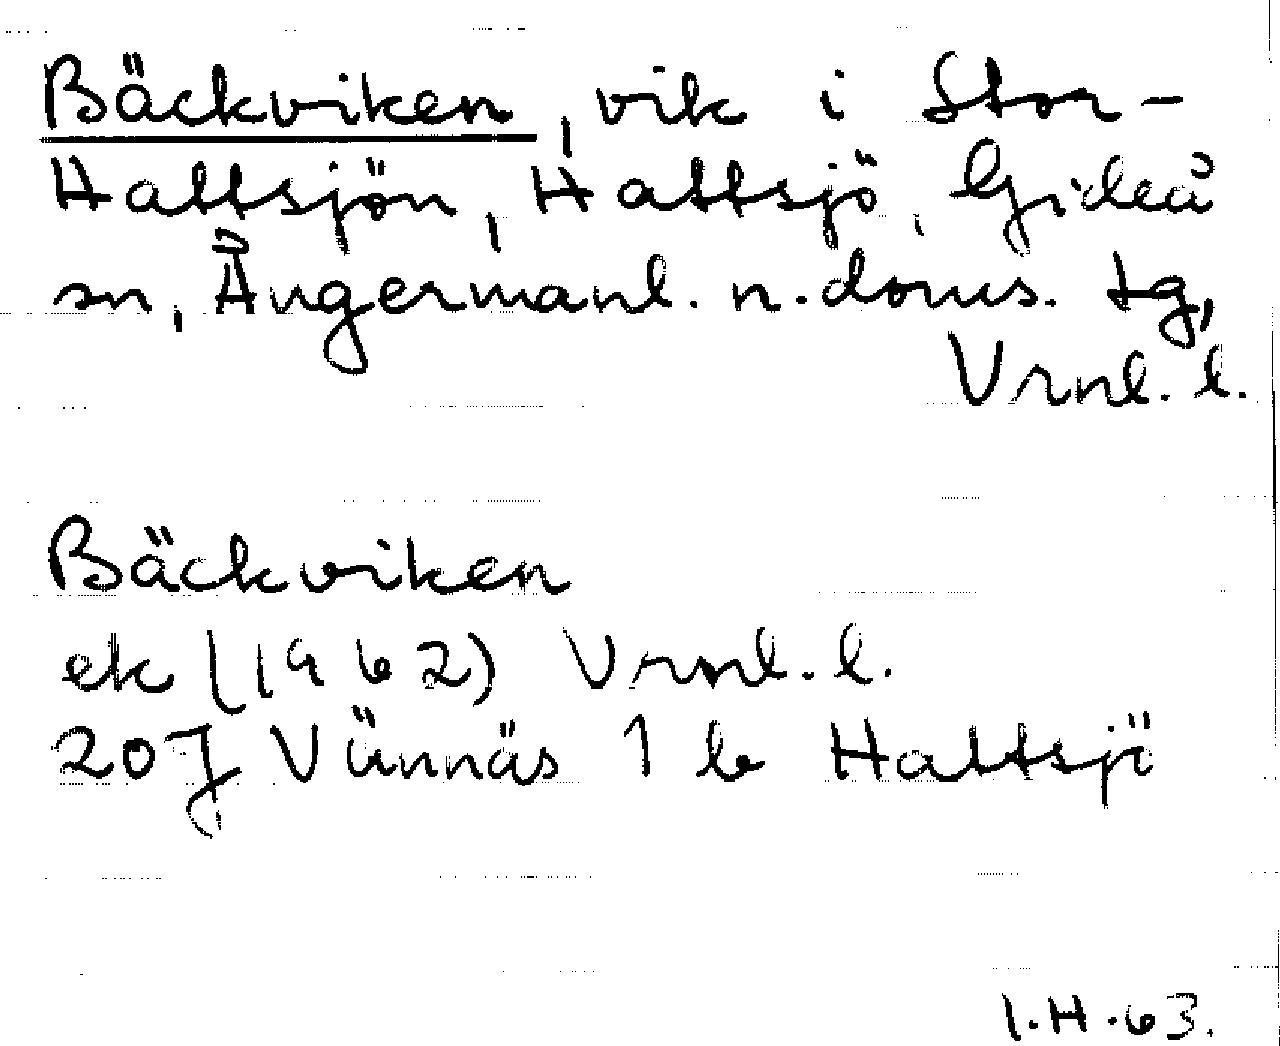 Bäckviken, vik i Stor-
Hattsjön, Hattsjö, Gideå
sn, Ångermanl. n. doms. tg,
Vrnl. l.
Bäckviken
ek (1962) Vrnl. l.
20J Vännäs 1 b Hattsjö
I.H.63.